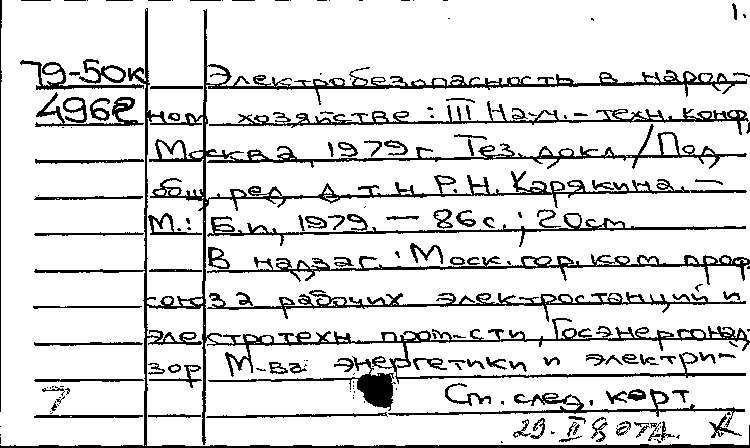 1.
79-50к Электробезопасность в народ-
496 ном хозяйстве : III Науч.-техн. конф,
Москва, 1979г. Тез. докл. / Под
общ. ред. д.т.н. Р.Н. Карякина. —
М.: Б.и., 1979. — 86с.; 20см.
В надзаг.: Моск. гор. ком. проф
союза рабочих электростанций и
электротехн. пром-сти, Госэнергонад
зор М-ва энергетики и электри-
7 См. след. карт.
29. II 8